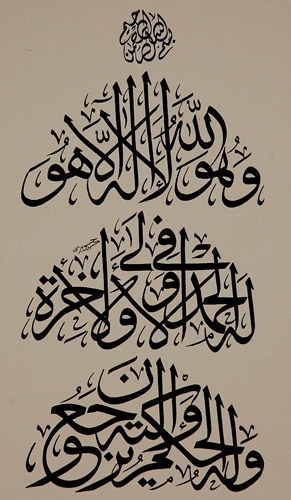 بسم الله الرحمن الرحيم
وهو الله لا اله الا هو
له الحمد في الاولى والاخرة
وله الحكم واليه ترجعون